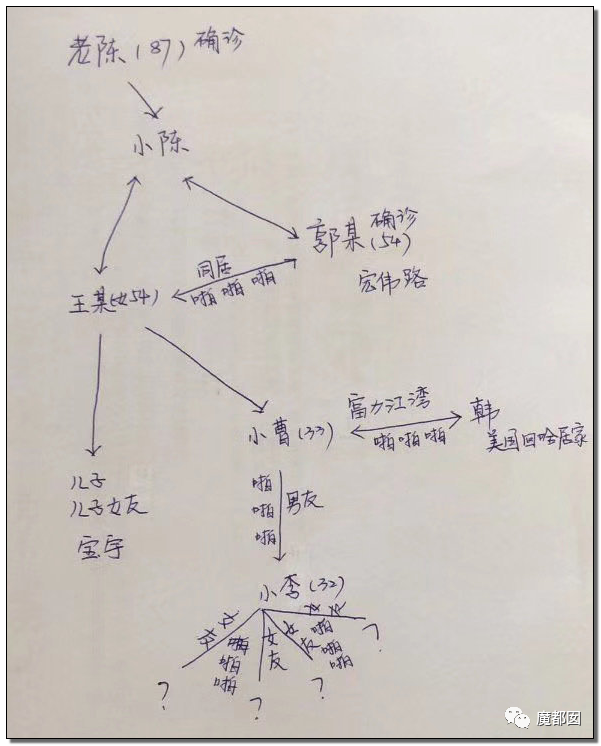 老陈(87)确诊
小陈
郭某(54)
确诊
宏伟路
同居
啪啪啪
王某(女54)
富力江湾
小曹(33)
啪啪啪
韩
美国回哈居家
儿子
儿子女友
宝宇
啪
啪
啪
男友
小李(32)
女友
啪
啪
啪
女友
女友
啪
啪
啪
?
?
?
?
魔都囡